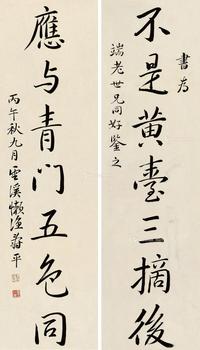 書為
端老世兄同好鑒之
不是黃臺三摘後
應与青门五色同
丙午秋九月雲溪懶漁蔣平